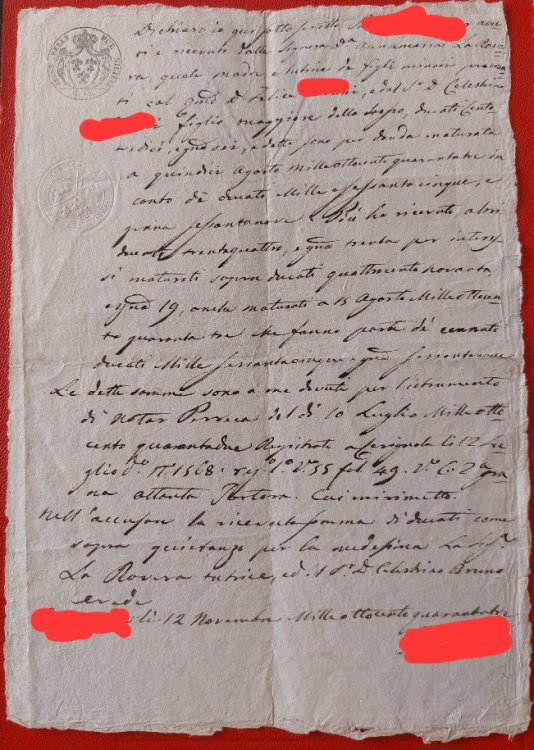 Dichiaro io qui sotto scritto
ti e ricevuti dalla Signora D.a Annamaria La Rove
ra, quale madre e tutrice de' figli minori procrea
ti col qm.d D. Felice e dal S.r D. Celestino
figlio maggiore dello stesso, ducati Cento
e detti sono per devda maturata
a quindici Agosto Milleottocento quarantatre in
conto di ducati Mille e sessantacinque, e
grana sessantanove. Più ho ricevuto altri
ducati trentaquattro, e gna trenta per interes
si maturati sopra ducati quattrocento novanta
e gna 19, anche maturati a 15 Agosto Milleottocen
to quaranta tre che fanno parte de' cennati
ducati Mille sessantacinque e gna sessantanove
Le dette somme sono a me dovute per l'istrumento
di Notar Perreca del dì 10 Luglio Milleotto
cento quarantadue Registrato a Cerignola li 12 Lu
glio d.o N.o 1568. reg. 1.o v. 55 fol. 49. v.o C. 2.a gra
na ottanta Tortora.
Nell'accusare la ricevuta somma di ducati come
sopra quietanzo per la medesima la Sig.a
La Rovera tutrice, ed il S.r D. Celestino Bruno
erede
li 12 Novembre Milleottocento quarantatre